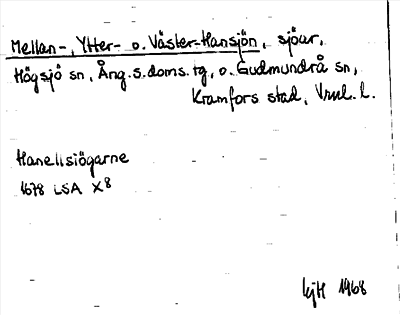 Mellan-, Ytter- o. Väster-Hansjön, sjöar,
Högsjö sn, Ång. s. doms. tg, o. Gudmundrå sn,
Kramfors stad, Vrnl. l.
Hanellsiögarne
1678 LSA X8
1968